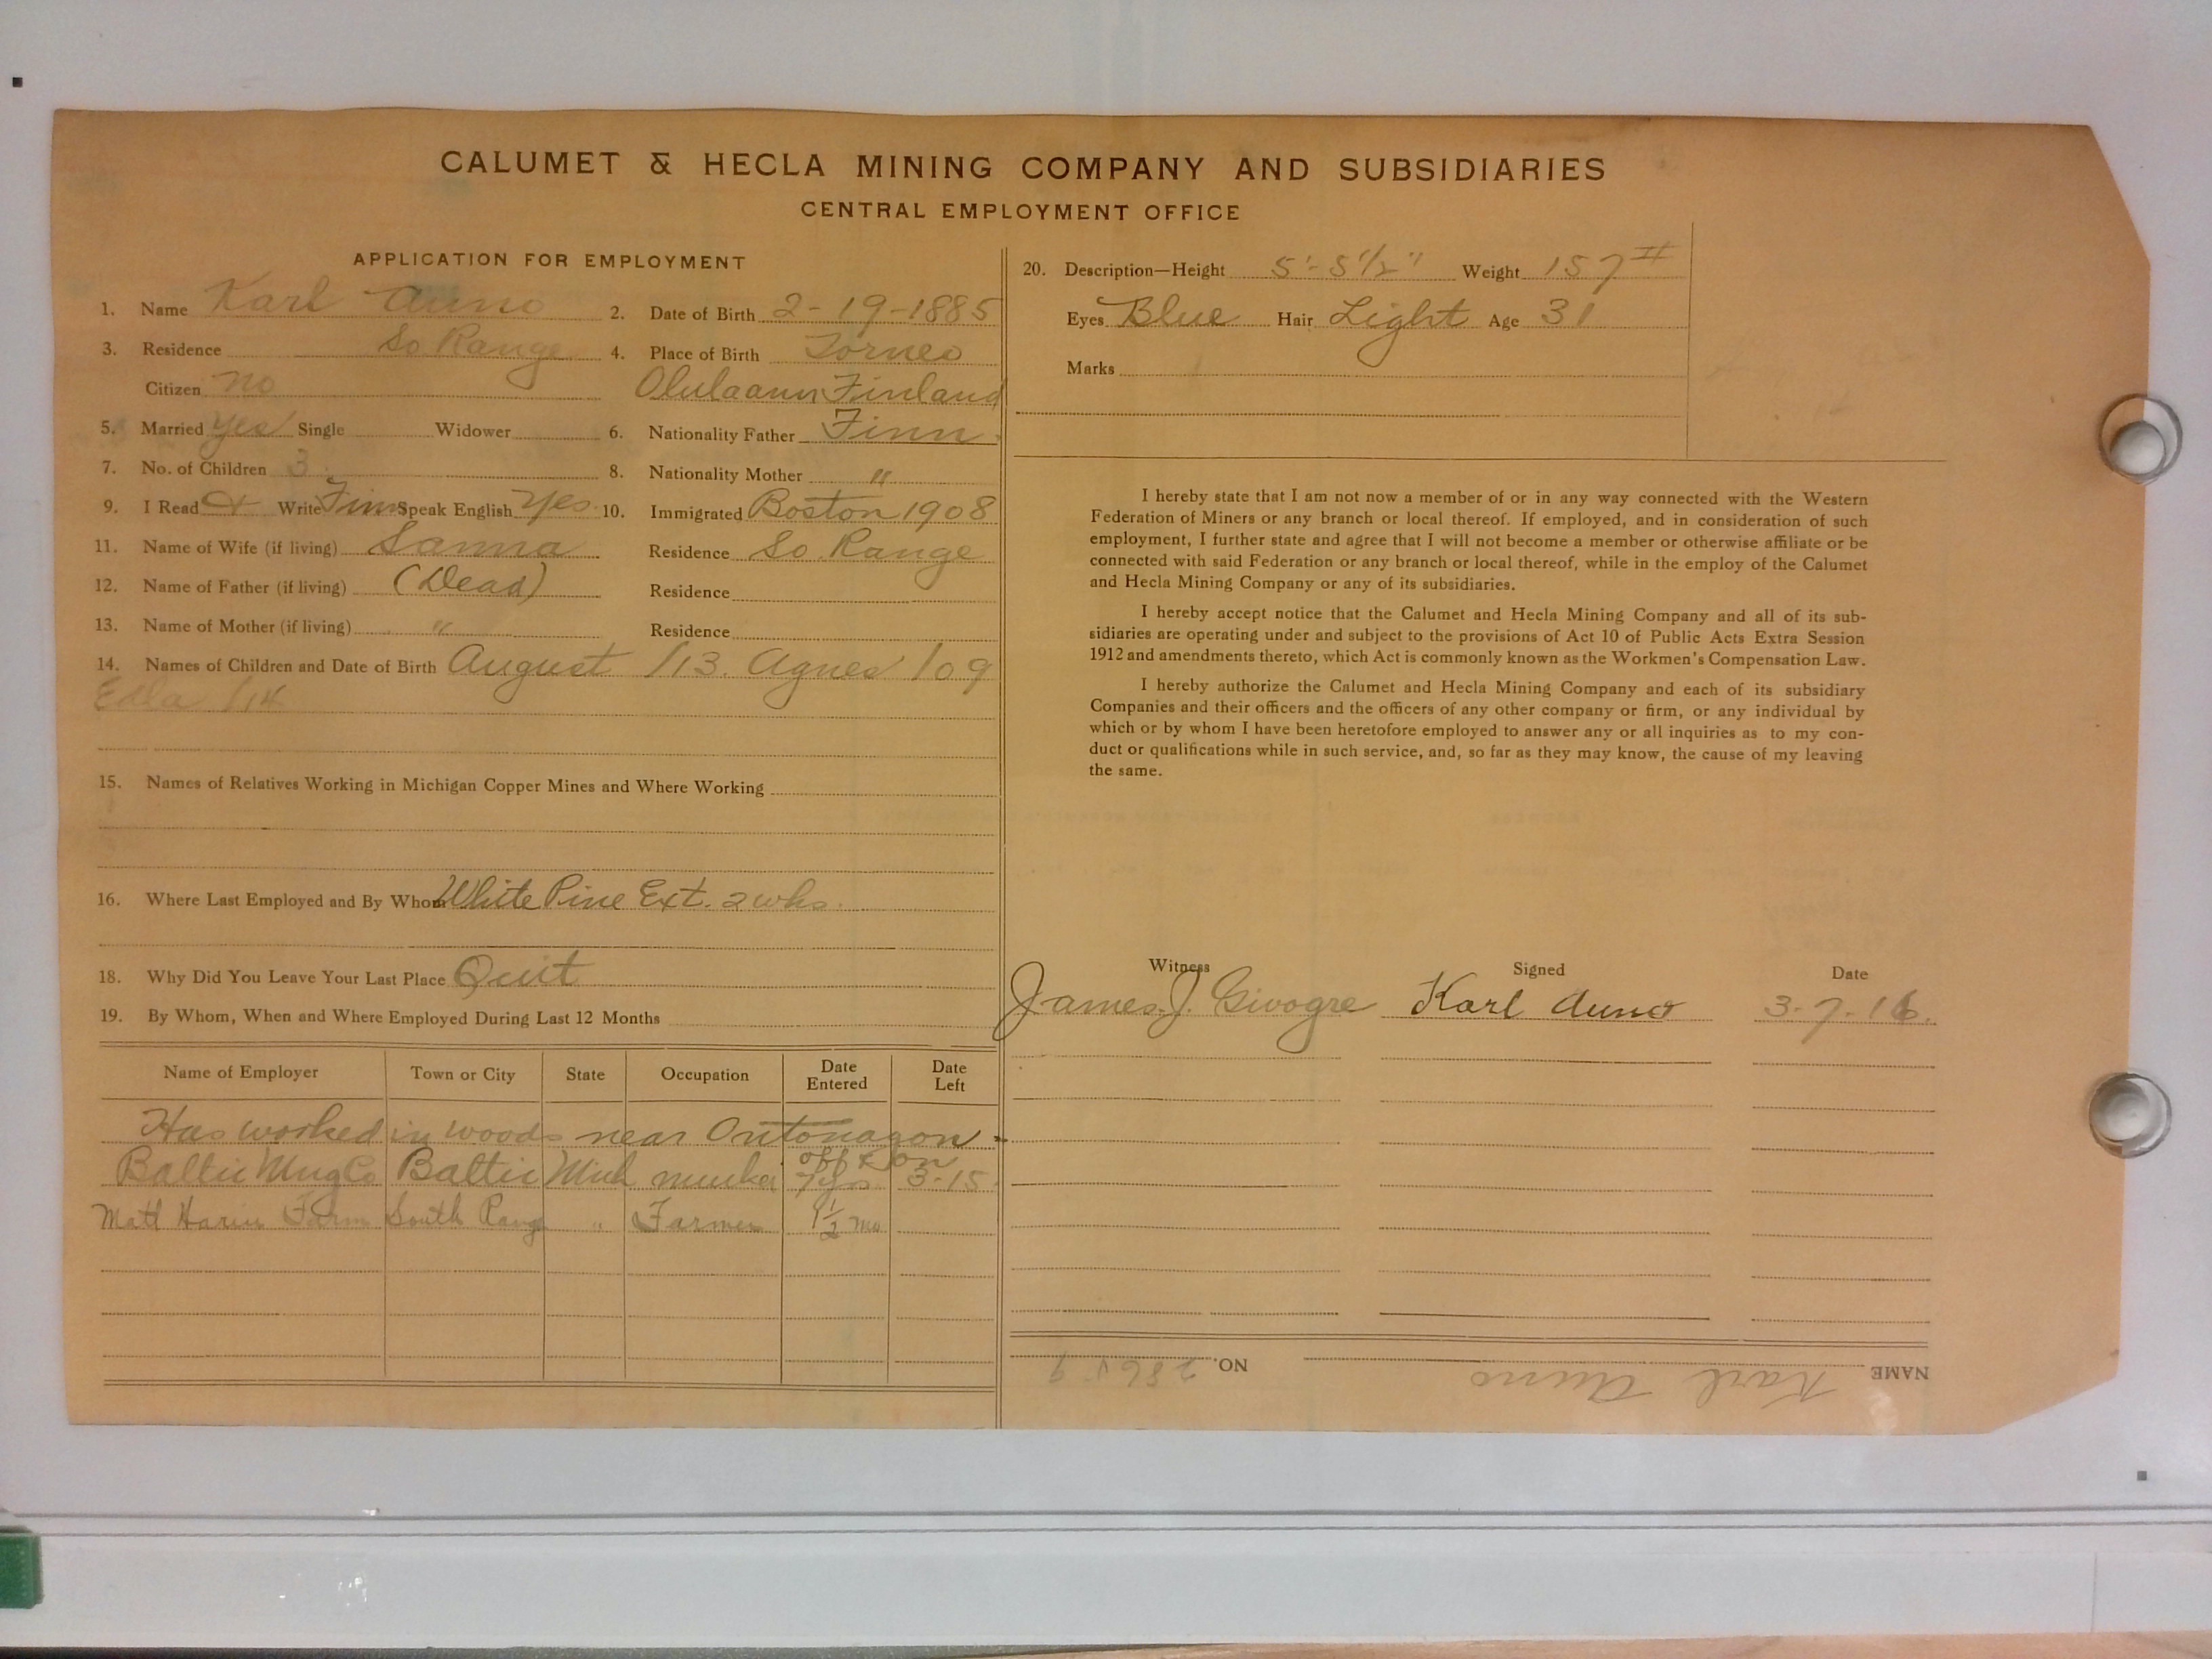 CALUMET & HECLA MINING COMPANY AND SUBSIDIARIES
CENTRAL EMPLOYMENT OFFICE
APPLICATION FOR EMPLOYMENT
1. Name Karl Auno 2. Date of Birth 2-19-1885
3. Residence So Range 4. Place of Birth Torneo
Citizen no Finland
5. Married yes Single Widower 6. Nationality Father Finn
7. No. of Children 3 8. Nationality Mother "
9. I Read & Write Finn Speak English Yes 10. Immigrated Boston 1908
11. Name of Wife (if living) Sanna Residence So. Range
12. Name of Father (if living) (Dead) Residence
13. Name of Mother (if living) " Residence
14. Names of Children and Date of Birth August /13. Agnes /09
Edla /14
15. Names of Relatives Working in Michigan Copper Mines and Where Working
16. Where Last Employed and By Whom White Pine Ext. 2 wks.
18. Why Did You Leave Your Last Place Quit
19. By Whom, When and Where Employed During Last 12 Months
Name of Employer Town or City State Occupation Date Entered Date Left
Has worked in woods near Ontonagon -
off & on
Baltic Mng Co Baltic Mich 7 yrs 3-15
Matt Farm South Range " Farmer 9 1/2 mo
20. Description—Height 5'-5 1/2" Weight 157 #
Eyes Blue Hair Light Age 31
Marks
I hereby state that I am not now a member of or in any way connected with the Western
Federation of Miners or any branch or local thereof. If employed, and in consideration of such
employment, I further state and agree that I will not become a member or otherwise affiliate or be
connected with said Federation or any branch or local thereof, while in the employ of the Calumet
and Hecla Mining Company or any of its subsidiaries.
I hereby accept notice that the Calumet and Hecla Mining Company and all of its sub-
sidiaries are operating under and subject to the provisions of Act 10 of Public Acts Extra Session
1912 and amendments thereto, which Act is commonly known as the Workmen's Compensation Law.
I hereby authorize the Calumet and Hecla Mining Company and each of its subsidiary
Companies and their officers and the officers of any other company or firm, or any individual by
which or by whom I have been heretofore employed to answer any or all inquiries as to my con-
duct or qualifications while in such service, and, so far as they may know, the cause of my leaving
the same.
Witness Signed Date
James J. Givogre Karl Auno 3-7-16.
NAME Karl Auno NO.